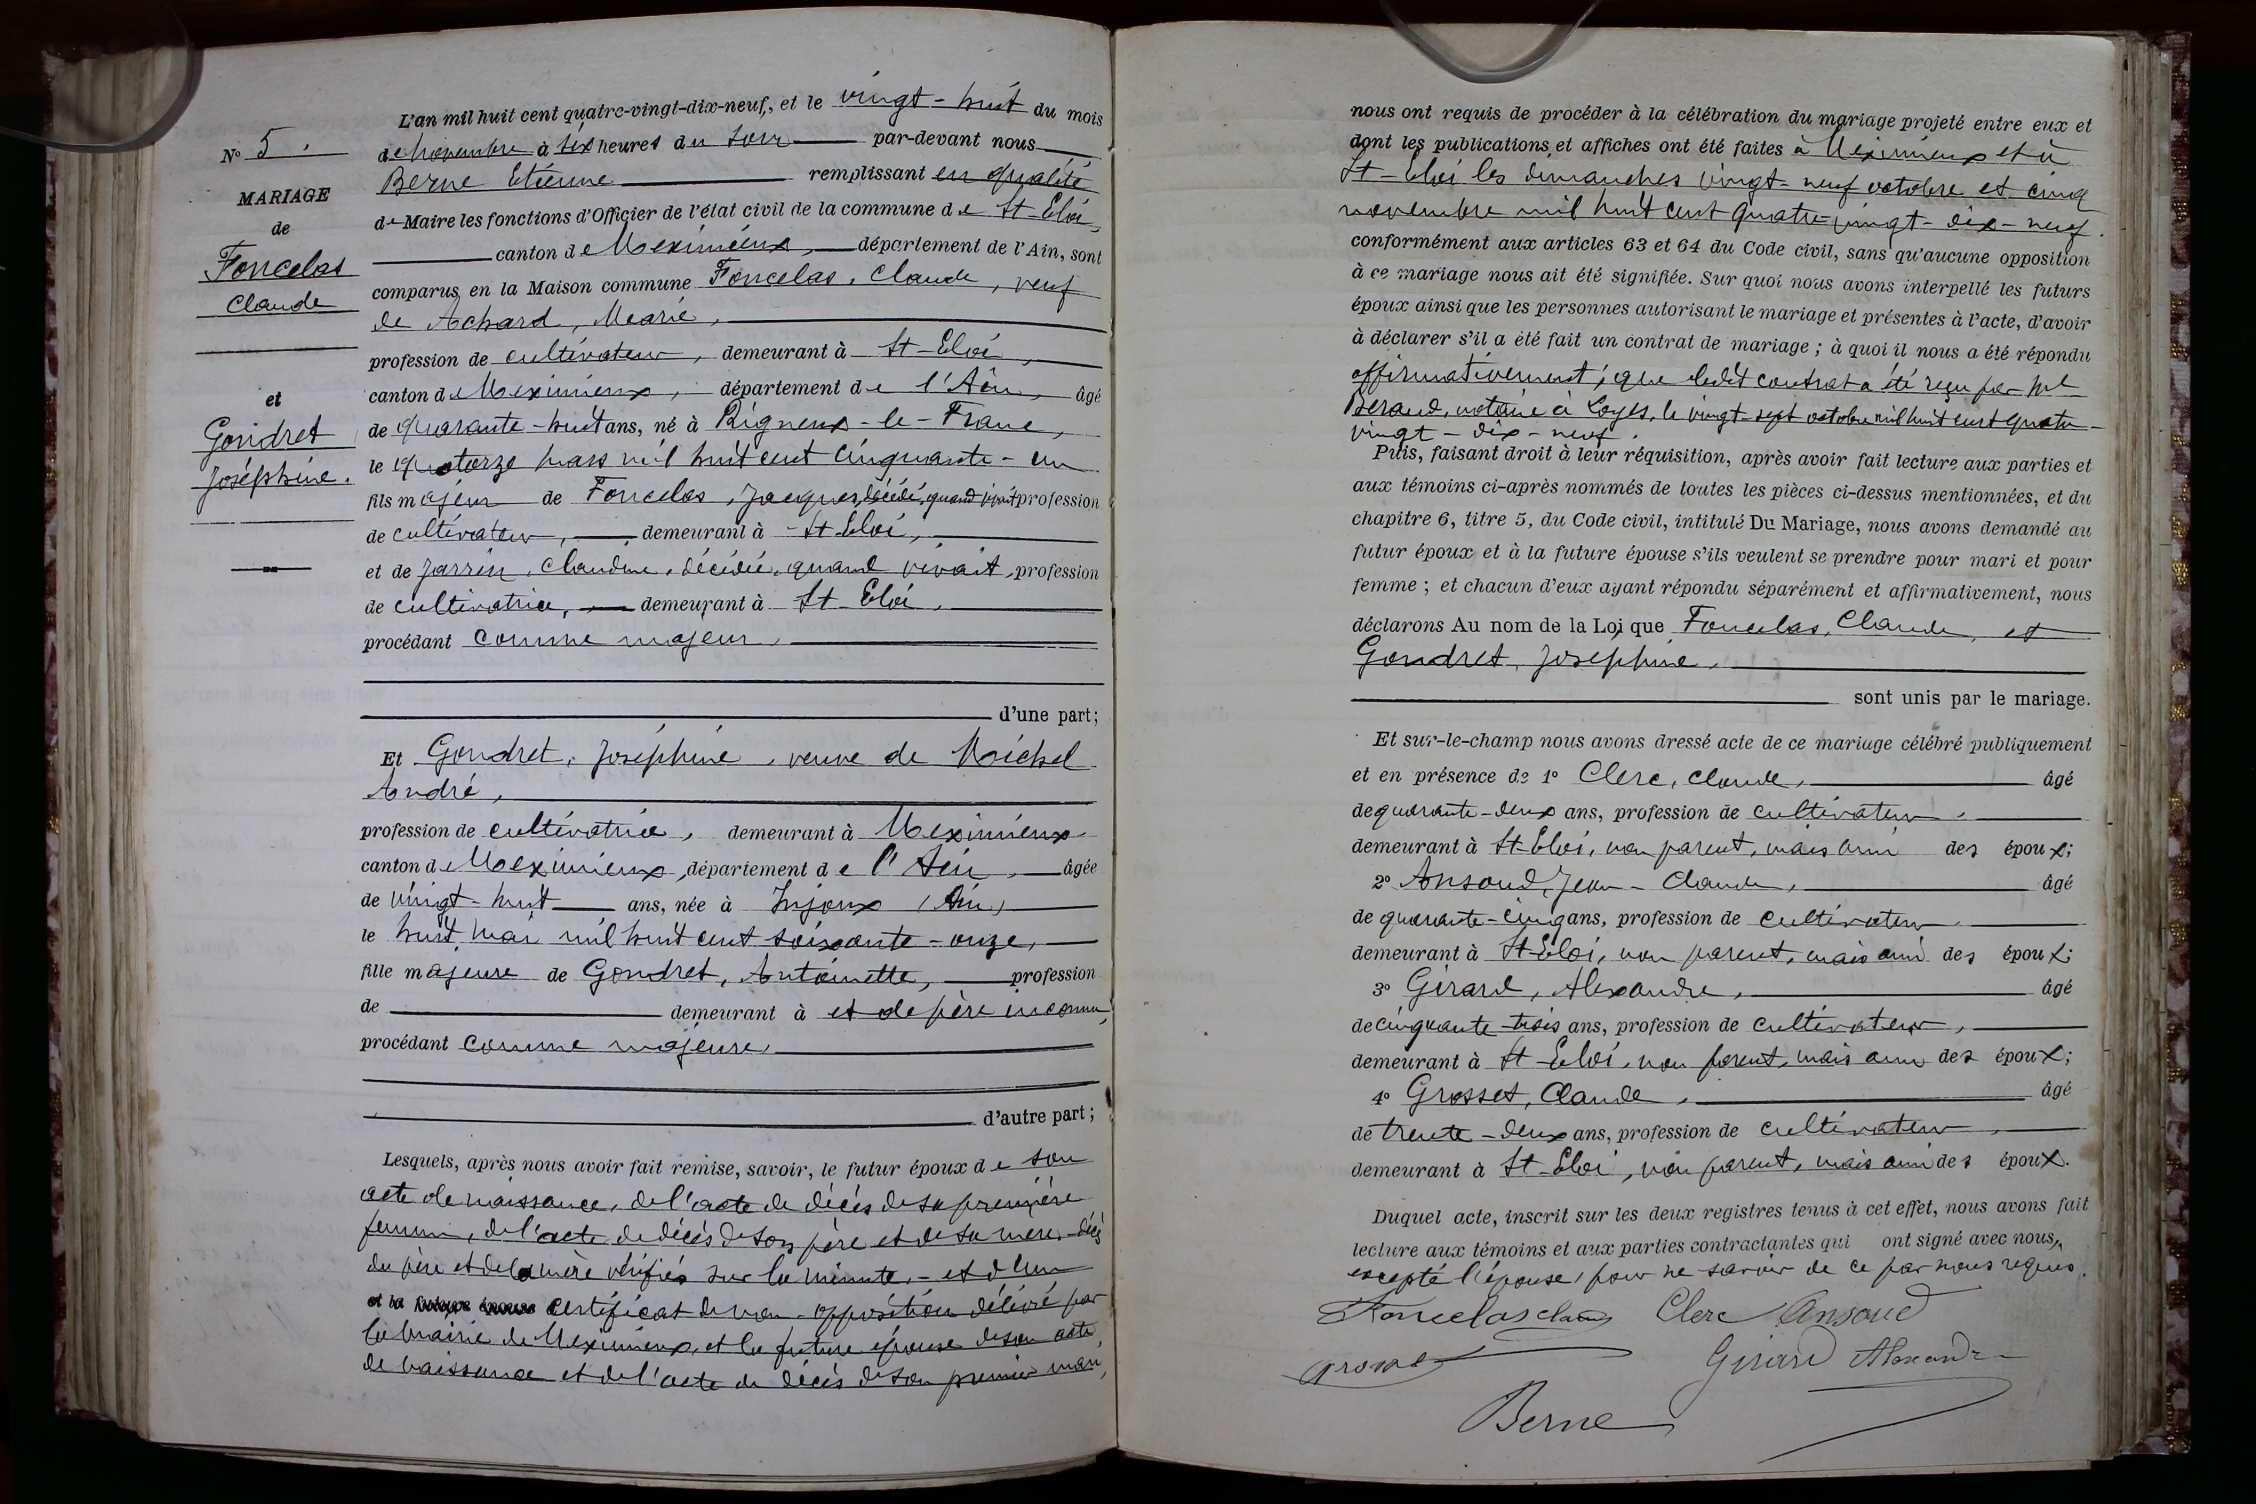 N° 5.
MARIAGE
de
Foncelas
Claude
et
Gondret
Joséphine.
L'an mil huit cent quatre-vingt-dix-neuf, et le vingt-huit du mois
de Novembre à six heures du soir par-devant nous
Berne Etienne remplissant en qualité
de Maire les fonctions d'Officier de l'état civil de la commune de St-Eloi,
canton de Meximieux, département de l'Ain, sont
comparus en la Maison commune Foncelas, Claude, veuf
de Achard, Marie,
profession de cultivateur, demeurant à St-Eloi,
canton de Meximieux, département de l'Ain, âgé
de quarante-huit ans, né à Rigneux-le-Franc,
le quatorze mars mil huit cent cinquante-un
fils majeur de Foncelas, Jacques, décédé, quand vivait profession
de cultivateur, demeurant à St-Eloi,
et de Jarrin, Claudine, décédée, quand vivait, profession
de cultivatrice, demeurant à St-Eloi,
procédant comme majeur,
d'une part;
Et Gondret, Joséphine, veuve de Michel
André,
profession de cultivatrice, demeurant à Meximieux
canton de Meximieux, département de l'Ain, âgée
de vingt-huit ans, née à Injoux (Ain)
le huit mai mil huit cent soixante-onze,
fille majeure de Gondret, Antoinette, profession
de demeurant à et de père inconnu,
procédant comme majeure,
d'autre part;
Lesquels, après nous avoir fait remise, savoir, le futur époux de son
acte de naissance, de l'acte de décès de sa première
femme, de l'acte de décès de son père et de sa mère, - décès
du père et de la mère vérifiés sur la minute, - et d'un
et la future épouse certificat de non-opposition délivré par
la mairie de Meximieux, et la future épouse de son acte
de naissance et de l'acte de décès de son premier mari,
nous ont requis de procéder à la célébration du mariage projeté entre eux et
dont les publications et affiches ont été faites à Meximieux et à
St-Eloi les dimanches vingt-neuf octobre et cinq
novembre mil huit cent quatre-vingt-dix-neuf.
conformément aux articles 63 et 64 du Code civil, sans qu'aucune opposition
à ce mariage nous ait été signifiée. Sur quoi nous avons interpellé les futurs
époux ainsi que les personnes autorisant le mariage et présentes à l'acte, d'avoir
à déclarer s'il a été fait un contrat de mariage; à quoi il nous a été répondu
affirmativement; que ledit contrat a été reçu par Me
Beraud, notaire à Loyes, le vingt-sept octobre mil huit cent quatre-
vingt-dix-neuf.
Puis, faisant droit à leur réquisition, après avoir fait lecture aux parties et
aux témoins ci-après nommés de toutes les pièces ci-dessus mentionnées, et du
chapitre 6, titre 5, du Code civil, intitulé Du Mariage, nous avons demandé au
futur époux et à la future épouse s'ils veulent se prendre pour mari et pour
femme; et chacun d'eux ayant répondu séparément et affirmativement, nous
déclarons Au nom de la Loi que Foncelas, Claude, et
Gondret, Joséphine,
sont unis par le mariage.
Et sur-le-champ nous avons dressé acte de ce mariage célébré publiquement
et en présence de 1° Clerc, Claude, âgé
de quarante-deux ans, profession de cultivateur,
demeurant à St-Eloi, non parent, mais ami des époux;
2° Ansoud, Jean-Claude, âgé
de quarante-cinq ans, profession de cultivateur,
demeurant à St-Eloi, non parent, mais ami des époux;
3° Girard, Alexandre, âgé
de cinquante-trois ans, profession de cultivateur,
demeurant à St-Eloi, non parent, mais ami des époux;
4° Grosset, Claude, âgé
de trente-deux ans, profession de cultivateur,
demeurant à St-Eloi, non parent, mais ami des époux.
Duquel acte, inscrit sur les deux registres tenus à cet effet, nous avons fait
lecture aux témoins et aux parties contractantes qui ont signé avec nous,
excepté l'épouse, pour ne savoir de ce par nous requis.
Foncelas Claude Clerc Ansoud
Girard Alexandre
Berne